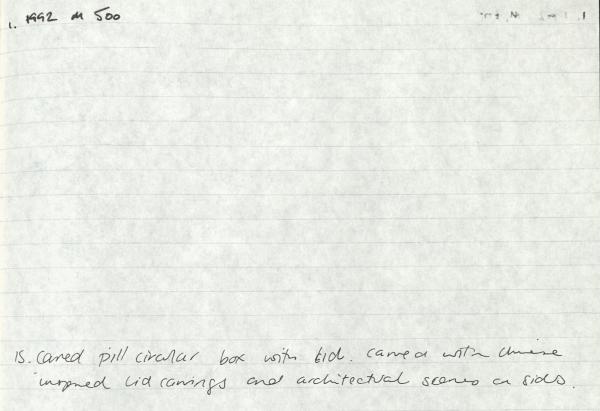 1. 1992 M 500
15. Carved pill circular box with lid. Carved with Chinese
inspired lid carvings and architectural scenes on sides.